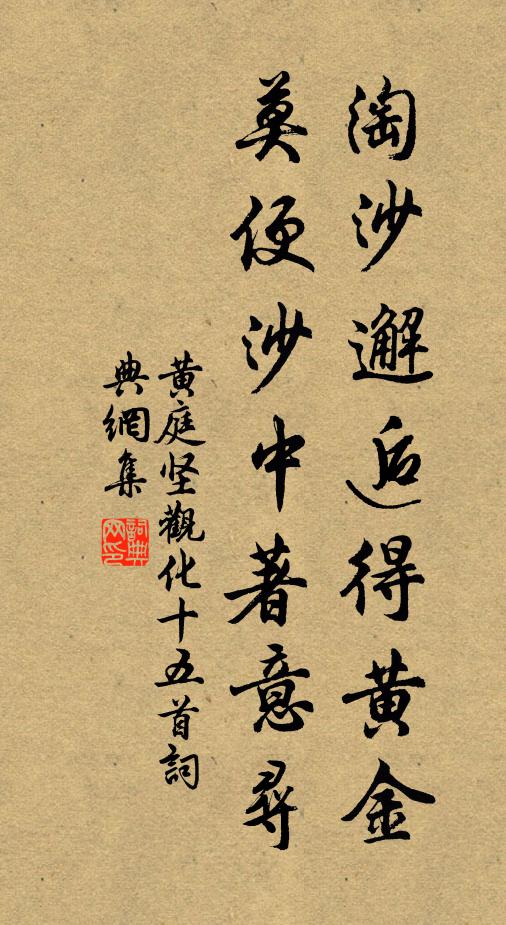 淘沙邂逅得黄金
莫便沙中著意尋
黄庭坚觀化十五首詞
典網集
詞典網印